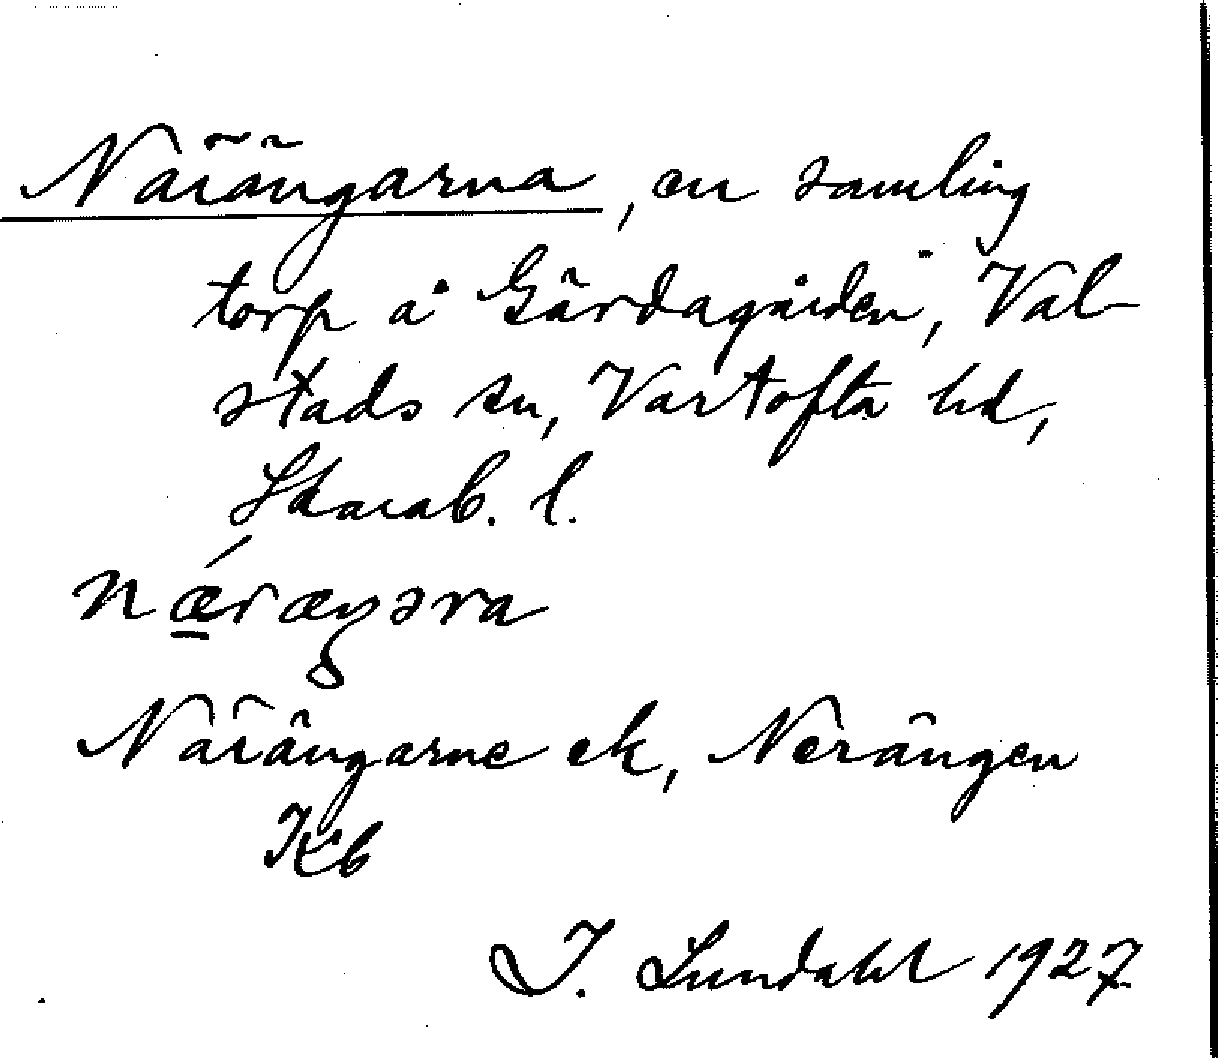 Närängarna, en samling
torp å Gärdagården, Val-
stads sn, Vartofta hd,
Skarab. l.
nǽ̲ræŋəra
Närängarne ek, Nerängen
Kb
I. Lundahl 1927